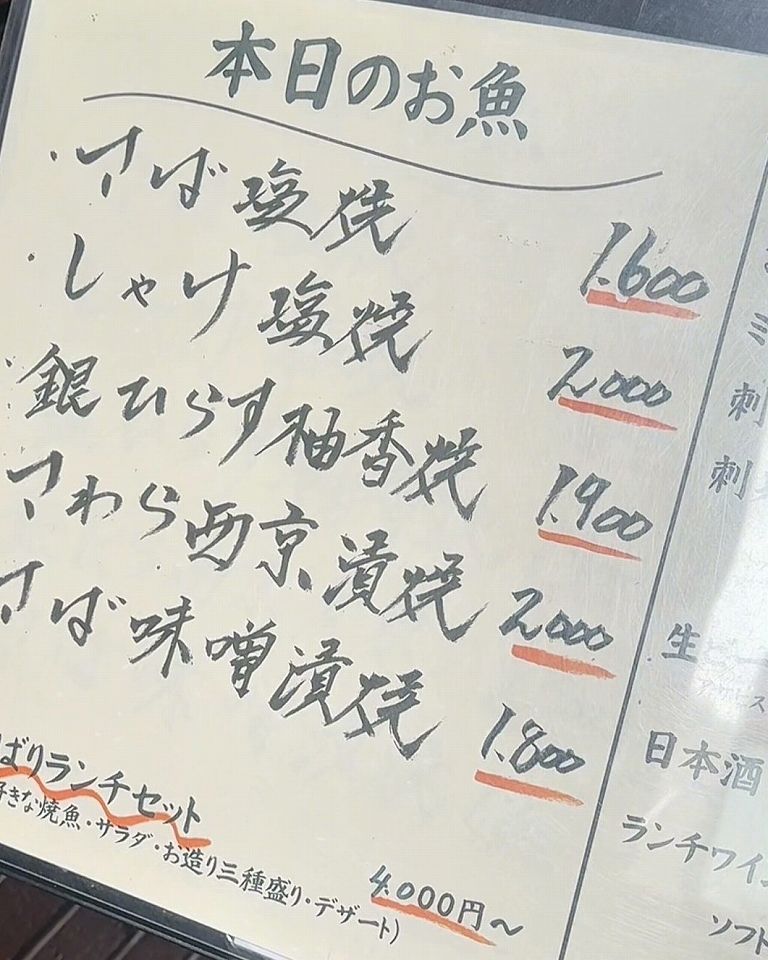 本日のお魚
・さば塩焼 1.600
・しゃけ塩焼 2.000
・銀ひらす柚香焼 1.900
さわら西京漬焼 2.000
さば味噌漬焼 1.800
ばりランチセット
好きな焼魚・サラダ・お造り三種盛り・デザート)
4.000円〜
刺
刺
生
日本酒
ランチワイン
ソフト